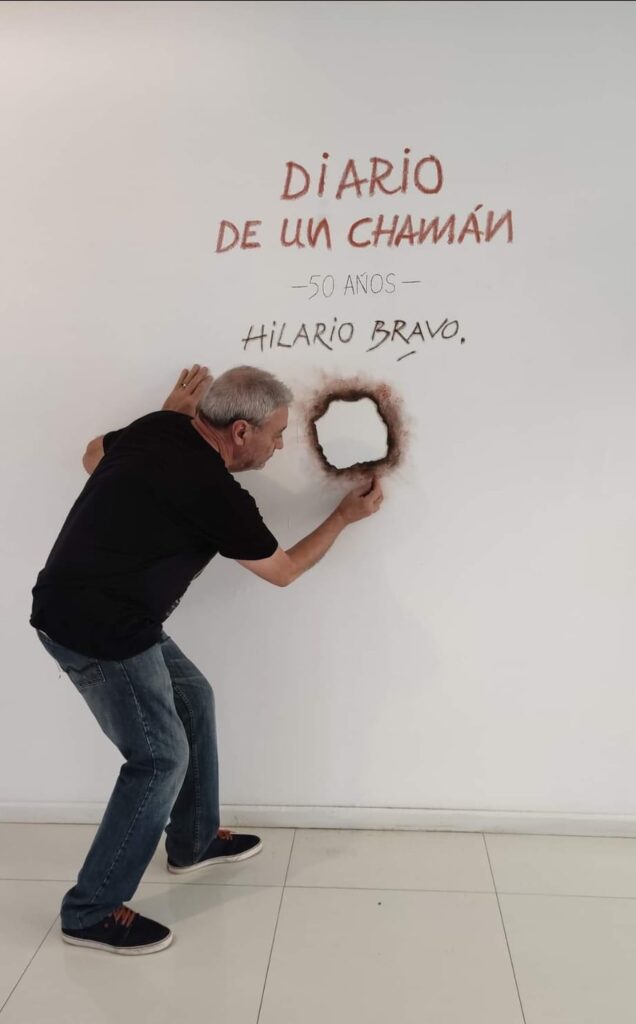 DiARiO
DE UN CHAMÁN
—50 AÑOS—
HiLARiO BRAVO.